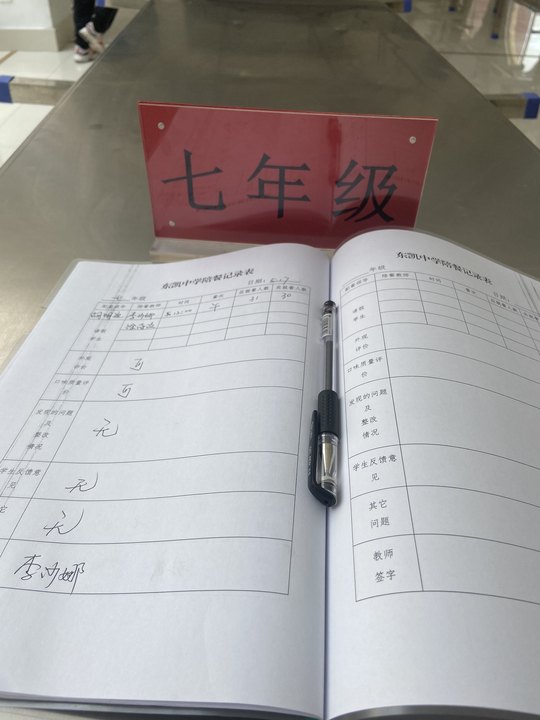 七年级
东凯中学陪餐记录表
七 年级 日期：5.7
配餐领导 陪餐教师 时间 餐次 应就餐人数 实就餐人数
李沙娜 午 31 30
请假
学生
外观
评价 可
口味质量评
价 可
发现的问题
及
整改
情况 无
学生反馈意
见 无
无
李沙娜
东凯中学陪餐记录表
年级
配餐领导 陪餐教师 时间 餐次
请假
学生
外观
评价
口味质量评
价
发现的问题
及
整改
情况
学生反馈意
见
其它
问题
教师
签字